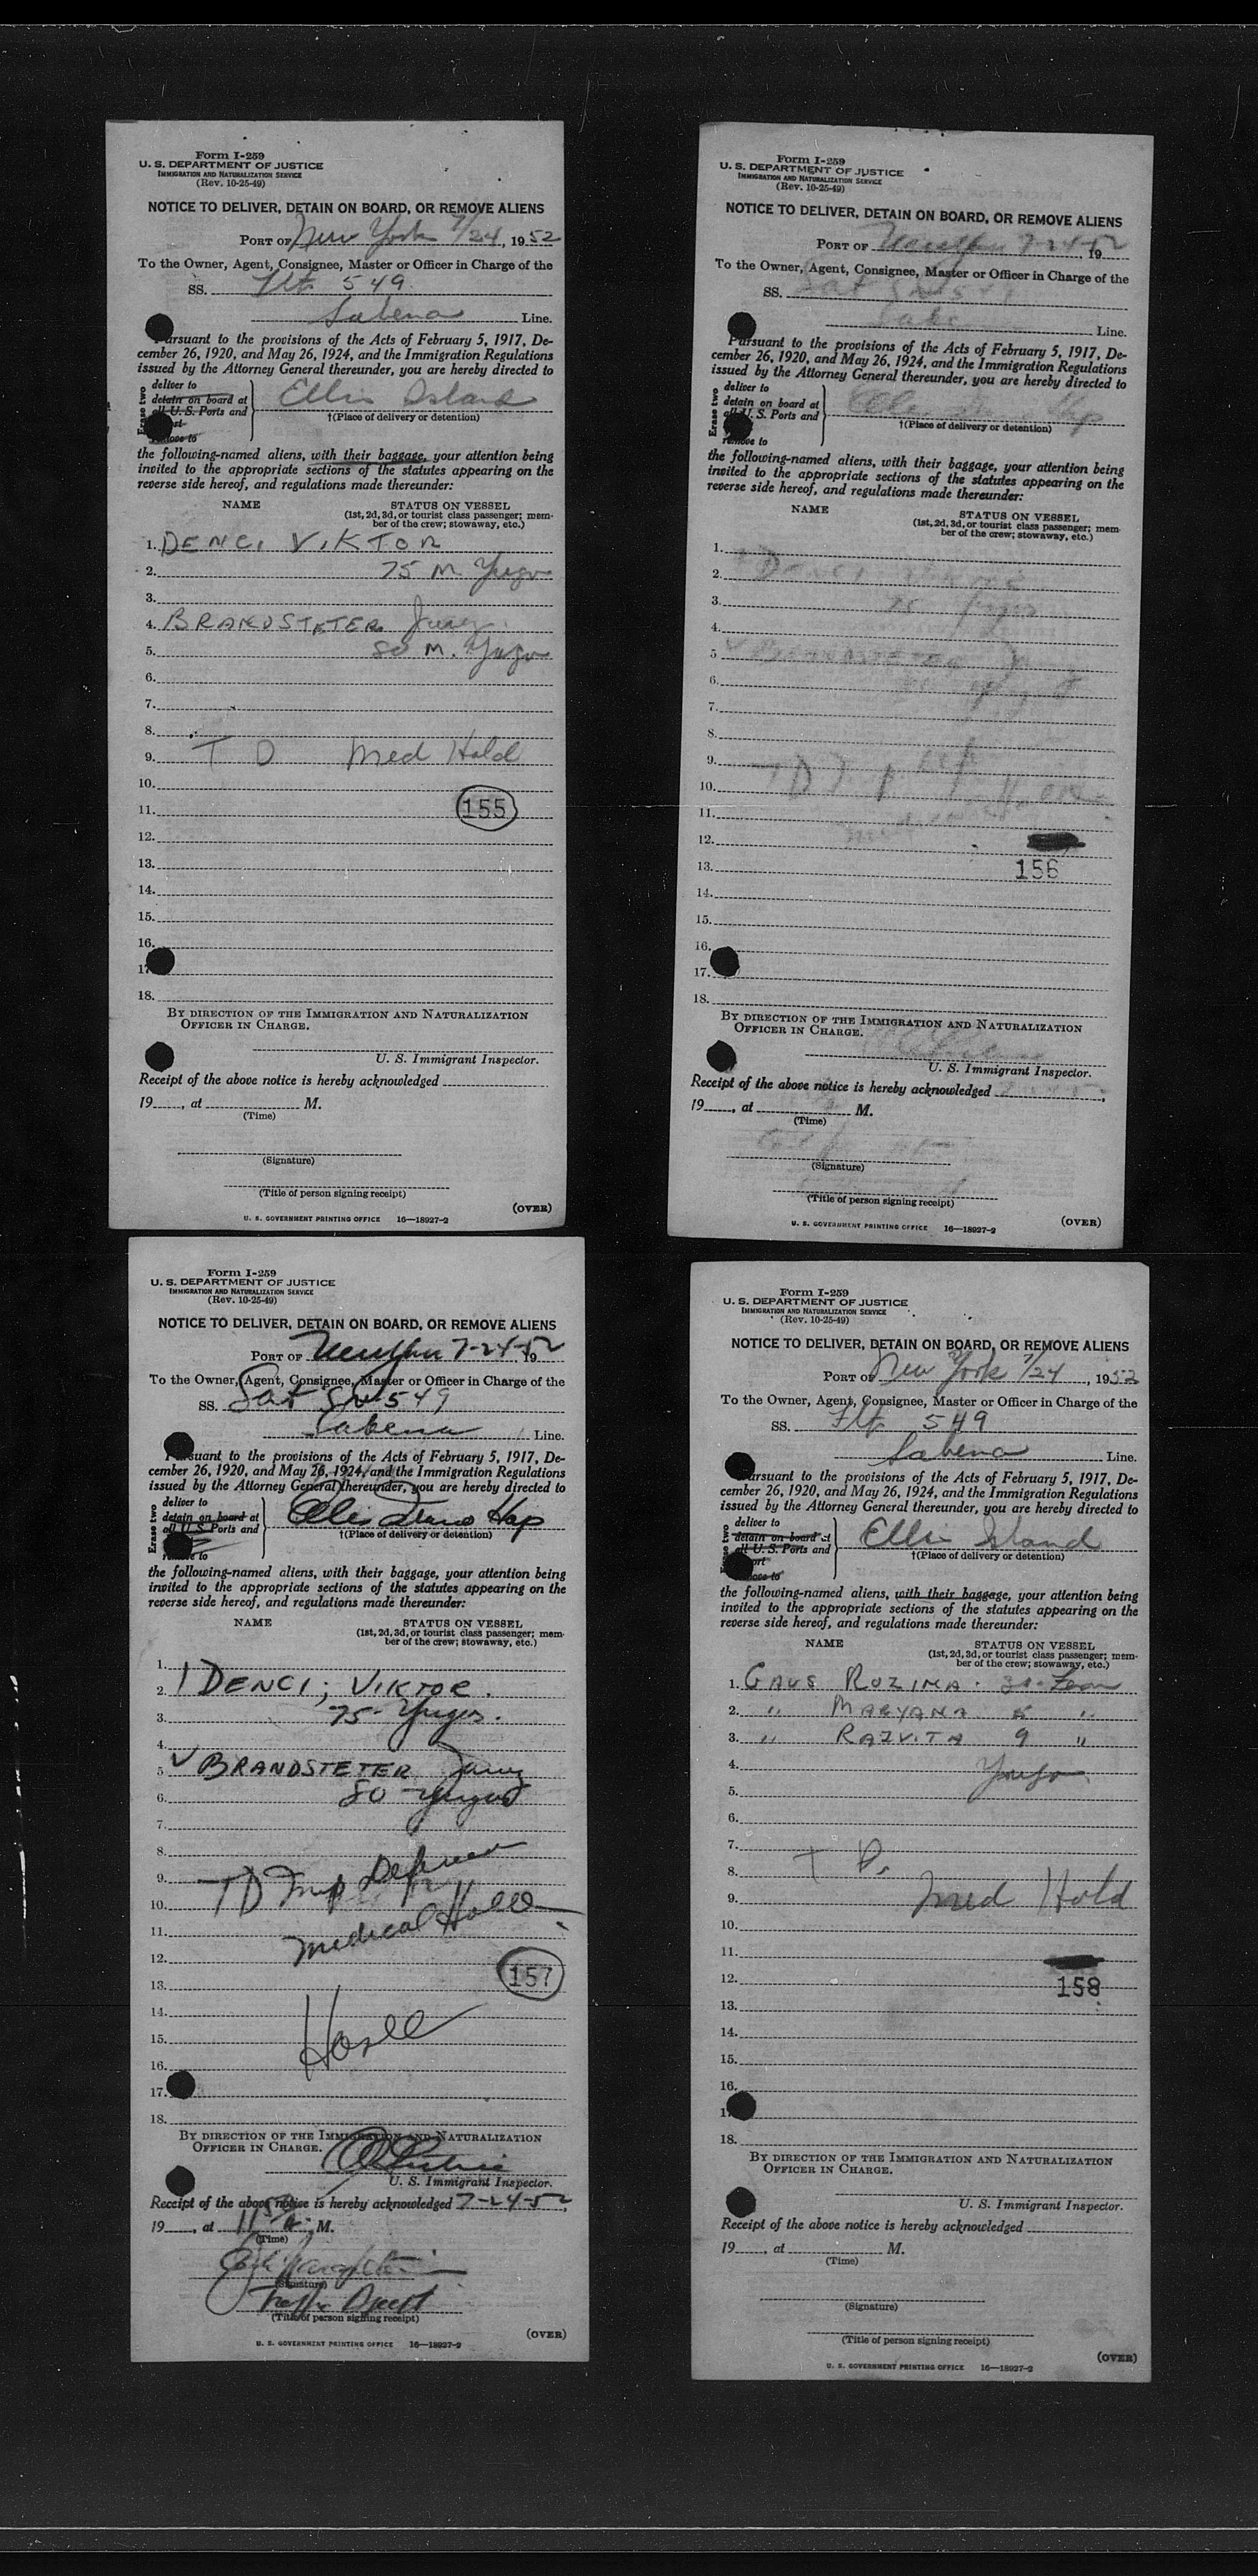 Form I-259
U. S. DEPARTMENT OF JUSTICE
IMMIGRATION AND NATURALIZATION SERVICE
(Rev. 10-25-49)
NOTICE TO DELIVER, DETAIN ON BOARD, OR REMOVE ALIENS
PORT OF New York 7/24, 1952
To the Owner, Agent, Consignee, Master or Officer in Charge of the
SS. Flt 549
Sabena Line.
Pursuant to the provisions of the Acts of February 5, 1917, De-
cember 26, 1920, and May 26, 1924, and the Immigration Regulations
issued by the Attorney General thereunder, you are hereby directed to
Erase two
deliver to
detain on board at
all U. S. Ports and
remove to
Ellis Island
†(Place of delivery or detention)
the following-named aliens, with their baggage, your attention being
invited to the appropriate sections of the statutes appearing on the
reverse side hereof, and regulations made thereunder:
NAME STATUS ON VESSEL
(1st, 2d, 3d, or tourist class passenger; mem-
ber of the crew; stowaway, etc.)
1. DENCI VIKTOR
2. 75 M. Yugo
3.
4. BRANDSTETER
5. 80 M. Yugo
6.
7.
8.
9. T D Med Hold
10.
11. 155
12.
13.
14.
15.
16.
17.
18.
BY DIRECTION OF THE IMMIGRATION AND NATURALIZATION
OFFICER IN CHARGE.
U. S. Immigrant Inspector.
Receipt of the above notice is hereby acknowledged
19, at M.
(Time)
(Signature)
(Title of person signing receipt)
(OVER)
U. S. GOVERNMENT PRINTING OFFICE 16—18927-2
Form I-259
U. S. DEPARTMENT OF JUSTICE
IMMIGRATION AND NATURALIZATION SERVICE
(Rev. 10-25-49)
NOTICE TO DELIVER, DETAIN ON BOARD, OR REMOVE ALIENS
PORT OF 7-24-52, 19
To the Owner, Agent, Consignee, Master or Officer in Charge of the
SS.
Line.
Pursuant to the provisions of the Acts of February 5, 1917, De-
cember 26, 1920, and May 26, 1924, and the Immigration Regulations
issued by the Attorney General thereunder, you are hereby directed to
Erase two
deliver to
detain on board at
all U. S. Ports and
remove to
†(Place of delivery or detention)
the following-named aliens, with their baggage, your attention being
invited to the appropriate sections of the statutes appearing on the
reverse side hereof, and regulations made thereunder:
NAME STATUS ON VESSEL
(1st, 2d, 3d, or tourist class passenger; mem-
ber of the crew; stowaway, etc.)
1.
2. DENCI VIKTOR
3. 75
4.
5. BRANDSTETER
6.
7.
8.
9.
10. TD
11.
12.
13. 156
14.
15.
16.
17.
18.
BY DIRECTION OF THE IMMIGRATION AND NATURALIZATION
OFFICER IN CHARGE.
U. S. Immigrant Inspector.
Receipt of the above notice is hereby acknowledged
19, at M.
(Time)
(Signature)
(Title of person signing receipt)
(OVER)
U. S. GOVERNMENT PRINTING OFFICE 16—18927-2
Form I-259
U. S. DEPARTMENT OF JUSTICE
IMMIGRATION AND NATURALIZATION SERVICE
(Rev. 10-25-49)
NOTICE TO DELIVER, DETAIN ON BOARD, OR REMOVE ALIENS
PORT OF 7-24-52, 19
To the Owner, Agent, Consignee, Master or Officer in Charge of the
SS. SN 549
Sabena Line.
Pursuant to the provisions of the Acts of February 5, 1917, De-
cember 26, 1920, and May 26, 1924, and the Immigration Regulations
issued by the Attorney General thereunder, you are hereby directed to
Erase two
deliver to
detain on board at
all U. S. Ports and
remove to
Ellis
†(Place of delivery or detention)
the following-named aliens, with their baggage, your attention being
invited to the appropriate sections of the statutes appearing on the
reverse side hereof, and regulations made thereunder:
NAME STATUS ON VESSEL
(1st, 2d, 3d, or tourist class passenger; mem-
ber of the crew; stowaway, etc.)
1.
2. 1 DENCI, VIKTOR.
3. 75 - Yugo.
4.
5. BRANDSTETER
6. 80
7.
8.
9.
10. TD
11. Medical Hold
12.
13. 157
14.
15.
16.
17.
18.
BY DIRECTION OF THE IMMIGRATION AND NATURALIZATION
OFFICER IN CHARGE.
U. S. Immigrant Inspector.
Receipt of the above notice is hereby acknowledged 7-24-52,
19, at M.
(Time)
(Signature)
Traffic Agent
(Title of person signing receipt)
(OVER)
U. S. GOVERNMENT PRINTING OFFICE 16—18927-2
Form I-259
U. S. DEPARTMENT OF JUSTICE
IMMIGRATION AND NATURALIZATION SERVICE
(Rev. 10-25-49)
NOTICE TO DELIVER, DETAIN ON BOARD, OR REMOVE ALIENS
PORT OF New York 7/24, 1952
To the Owner, Agent, Consignee, Master or Officer in Charge of the
SS. Flt 549
Sabena Line.
Pursuant to the provisions of the Acts of February 5, 1917, De-
cember 26, 1920, and May 26, 1924, and the Immigration Regulations
issued by the Attorney General thereunder, you are hereby directed to
Erase two
deliver to
detain on board at
all U. S. Ports and
remove to
Ellis Island
†(Place of delivery or detention)
the following-named aliens, with their baggage, your attention being
invited to the appropriate sections of the statutes appearing on the
reverse side hereof, and regulations made thereunder:
NAME STATUS ON VESSEL
(1st, 2d, 3d, or tourist class passenger; mem-
ber of the crew; stowaway, etc.)
1. GAUS ROZINA
2. " MARYANA "
3. " RAZVITA 9 "
4. Yugo
5.
6.
7.
8. T D.
9. Med Hold
10.
11.
12. 158
13.
14.
15.
16.
17.
18.
BY DIRECTION OF THE IMMIGRATION AND NATURALIZATION
OFFICER IN CHARGE.
U. S. Immigrant Inspector.
Receipt of the above notice is hereby acknowledged
19, at M.
(Time)
(Signature)
(Title of person signing receipt)
(OVER)
U. S. GOVERNMENT PRINTING OFFICE 16—18927-2